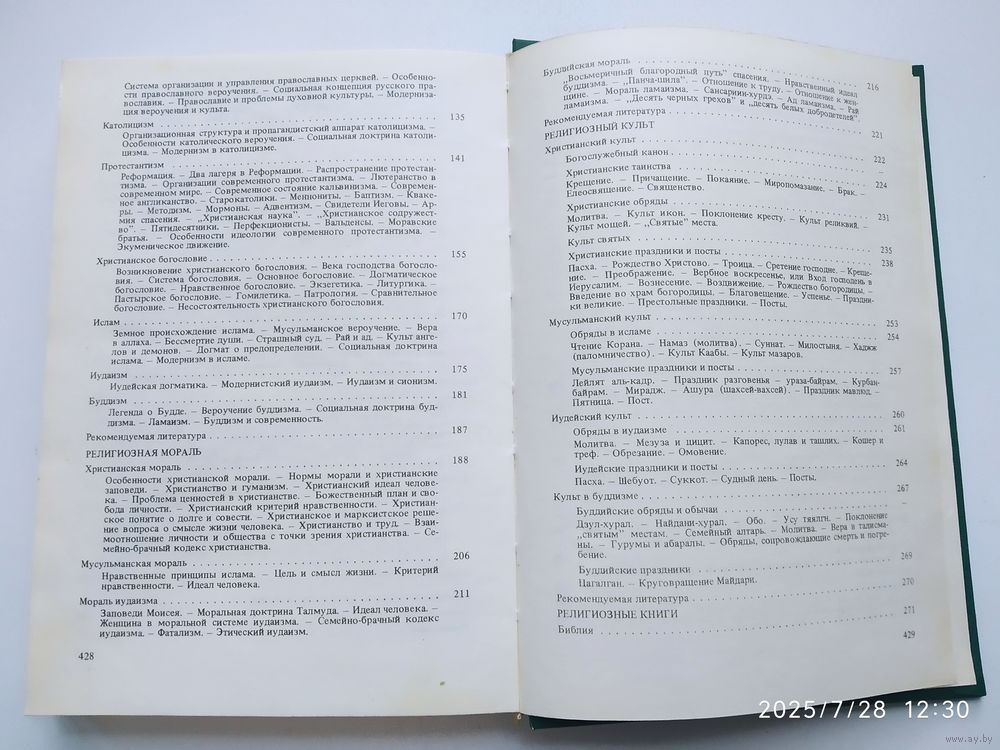 Система организации и управления православных церквей. – Особенно-
сти православного вероучения. – Социальная концепция русского пра-
вославия. – Православие и проблемы духовной культуры. – Модерниза-
ция вероучения и культа.
Католицизм . . . 135
Организационная структура и пропагандистский аппарат католицизма. –
Особенности католического вероучения. – Социальная доктрина католи-
цизма. – Модернизм в католицизме.
Протестантизм . . . 141
Реформация. – Два лагеря в Реформации. – Распространение протестан-
тизма. – Организации современного протестантизма. – Лютеранство в
современном мире. – Современное состояние кальвинизма. – Современ-
ное англиканство. – Старокатолики. – Меннониты, – Баптизм. – Кваке-
ры. – Методизм. – Мормоны. – Адвентизм. – Свидетели Иеговы. – Ар-
мия спасения. – „Христианская наука". – „Христианское содружест-
во". – Пятидесятники. – Перфекционисты. – Вальденсы. – Моравские
братья. – Особенности идеологии современного протестантизма. –
Экуменическое движение.
Христианское богословие . . . 155
Возникновение христианского богословия. – Века господства богосло-
вия. – Система богословия. – Основное богословие. – Догматическое
богословие. – Нравственное богословие. – Экзегетика. – Литургика. –
Пастырское богословие. – Гомилетика. – Патрология. – Сравнительное
богословие. – Несостоятельность христианского богословия.
Ислам . . . 170
Земное происхождение ислама. – Мусульманское вероучение. – Вера
в аллаха. – Бессмертие души. – Страшный суд. – Рай и ад. – Культ анге-
лов и демонов. – Догмат о предопределении. – Социальная доктрина
ислама. – Модернизм в исламе.
Иудаизм . . . 175
Иудейская догматика. – Модернистский иудаизм. – Иудаизм и сионизм.
Буддизм . . . 181
Легенда о Будде. – Вероучение буддизма. – Социальная доктрина буд-
дизма. – Ламаизм. – Буддизм и современность.
Рекомендуемая литература . . . 187
РЕЛИГИОЗНАЯ МОРАЛЬ
Христианская мораль . . . 188
Особенности христианской морали. – Нормы морали и христианские
заповеди. – Христианство и гуманизм. – Христианский идеал челове-
ка. – Проблема ценностей в христианстве. – Божественный план и сво-
бода личности. – Христианский критерий нравственности. – Христиан-
ское понятие о долге и совести. – Христианское и марксистское реше-
ние вопроса о смысле жизни человека. – Христианство и труд. – Взаи-
моотношение личности и общества с точки зрения христианства. – Се-
мейно-брачный кодекс христианства.
Мусульманская мораль . . . 206
Нравственные принципы ислама. – Цель и смысл жизни. – Критерий
нравственности. – Идеал человека.
Мораль иудаизма . . . 211
Заповеди Моисея. – Моральная доктрина Талмуда. – Идеал человека. –
Женщина в моральной системе иудаизма. – Семейно-брачный кодекс
иудаизма. – Фатализм. – Этический иудаизм.
428
Буддийская мораль . . . 216
„Восьмеричный благородный путь" спасения. – Нравственный идеал
буддизма. – „Панча-шила". – Отношение к труду. – Отношение к жен-
щине. – Мораль ламаизма. – Сансариин-хурдэ. – Ад ламаизма. – Рай
ламаизма. – „Десять черных грехов" и „десять белых добродетелей".
Рекомендуемая литература . . . 221
РЕЛИГИОЗНЫЙ КУЛЬТ
Христианский культ . . . 222
Богослужебный канон . . .
Христианские таинства . . . 224
Крещение. – Причащение. – Покаяние. – Миропомазание. – Брак. –
Елеосвящение. – Священство.
Христианские обряды . . . 231
Молитва. – Культ икон. – Поклонение кресту. – Культ реликвий. –
Культ мощей. – „Святые" места.
Культ святых . . . 235
Христианские праздники и посты . . . 238
Пасха. – Рождество Христово. – Троица. – Сретение господне. – Креще-
ние. – Преображение. – Вербное воскресенье, или Вход господень в
Иерусалим. – Вознесение. – Воздвижение. – Рождество богородицы. –
Введение во храм богородицы. – Благовещение. – Успенье. – Праздни-
ки великие. – Престольные праздники. – Посты.
Мусульманский культ . . . 253
Обряды в исламе . . . 254
Чтение Корана. – Намаз (молитва). – Суннат. – Милостыня. – Хаджж
(паломничество). – Культ Каабы. – Культ мазаров.
Мусульманские праздники и посты . . . 257
Лейлят аль-кадр. – Праздник разговенья – ураза-байрам. – Курбан-
байрам. – Мирадж. – Ашура (шахсей-вахсей). – Праздник мавлюд. –
Пятница. – Пост.
Иудейский культ . . . 260
Обряды в иудаизме . . . 261
Молитва. – Мезуза и цицит. – Капорес, лулав и ташлих. – Кошер и
треф. – Обрезание. – Омовение.
Иудейские праздники и посты . . . 264
Пасха. – Шебуот. – Суккот. – Судный день. – Посты.
Культ в буддизме . . . 267
Буддийские обряды и обычаи . . .
Дзул-хурал. – Найдани-хурал. – Обо. – Усу тяялгн. – Поклонение
„святым" местам. – Семейный алтарь. – Молитва. – Вера в талисма-
ны. – Гурумы и абаралы. – Обряды, сопровождающие смерть и погре-
бение.
Буддийские праздники . . . 269
Цагалган. – Круговращение Майдари.
Рекомендуемая литература . . . 270
РЕЛИГИОЗНЫЕ КНИГИ
Библия . . . 271
429
2025/7/28 12:30
www.ay.by